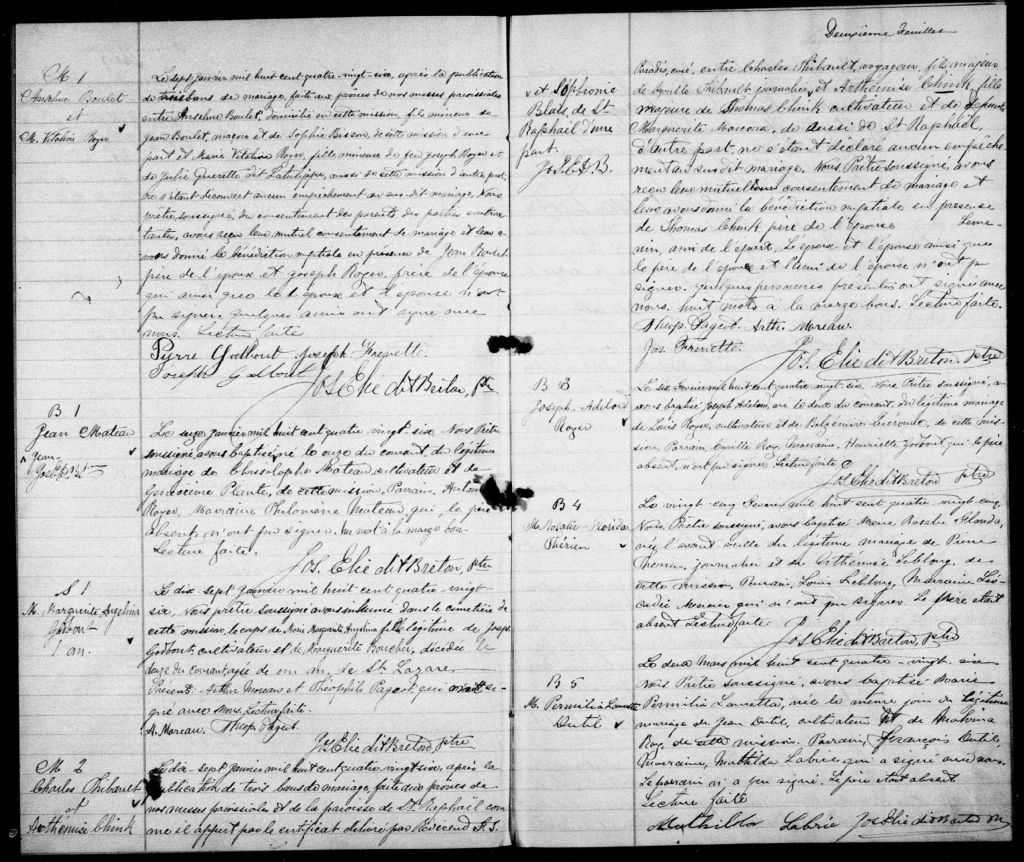 M 1
Anselme Boulet
et
M. Vitaline Royer
Le sept janvier mil huit cent quatre-vingt-six, après la publication
de trois bans de mariage, faite aux prônes de nos messes paroissiales
entre Anselme Boulet, domicilié en cette mission, fils mineur de
Jean Boulet, maçon et de Sophie Bisson de cette mission d'une
part et Marie Vitaline Royer, fille mineure de feu Joseph Royer et
de Julie Guerette dit Latulippe, aussi de cette mission d'autre part,
ne s'étant découvert aucun empêchement au susdit mariage, Nous
prêtre, soussigné, du consentement des parents des parties contrac-
tantes, avons reçu leur mutuel consentement de mariage et leur a-
vons donné la bénédiction nuptiale en présence de Jean Boulet
père de l'époux et Joseph Royer, frère de l'épouse
qui ainsi que l'époux et l'épouse n'ont
pu signer. Quelques amis ont signé avec
nous. Lecture faite
Pierre Godbout. Joseph Frenette.
Joseph Godbout
Jos. Elie dit Breton, ptre
B 1
Jean Mateau
Jean-
Jos. E. D. B.
Le seize janvier mil huit cent quatre vingt-six Nous Prêtre
soussigné avons baptisé, né le onze du courant, du légitime
mariage de Christophe Mateau, cultivateur et de
Geneviève Plante, de cette mission, Parrain,
Royer, Marraine Philomene Mateau, qui, le père
absent, n'ont pu signer. Un mot à la marge bon.
Lecture faite.
Jos. Elie dit Breton, ptre
S 1
M. Marguerite Angelina
Godbout
an.
Le dix sept janvier mil huit cent quatre-vingt-
six, Nous prêtre soussigné avons inhumé dans le cimetière de
cette mission, le corps de Marie Marguerite Angelina fille légitime de Joseph
Godbout, cultivateur et de Marguerite Boucher, décédée le
douze du courant agée de un an, de St Lazare.
Présent: Arthur Moreau et Théophile Pageot, qui ont si-
gné avec Nous, Lecture faite.
A. Moreau. Theop. Pageot.
Jos. Elie dit Breton ptre
M 2
Charles Thibault
et
Arthémise Chink
Le dix-sept janvier mil huit cent quatre vingt six, après la
publication de trois bans de mariage, faite aux prônes de
nos messes paroissiales et de la paroisse de St Raphaël com
me il appert par le certificat délivré par Révérend A. S.
Deuxième Feuillet
et Sophronie
Blais, de St-
Raphaël d'une
part.
Jos. E. D. B.
Paradis, curé, entre Charles Thibault, voyageur, fils majeur
de Cyrille Thibault journalier, et Arthémise Chink, fille
majeure de Thomas Chink cultivateur et de défunte
Marguerite Marcoux, de aussi de St Raphaël,
d'autre part, ne s'étant déclaré aucun empêche
ment au susdit mariage. Nous Prêtre soussigné, avons
reçu leur mutuel consentement de mariage et
leur avons donné la bénédiction nuptiale en présence
de Thomas Chink père de l'épouse
ami de l'époux, Le époux et l'épouse ainsi que
le père de l'épouse et l'ami de l'épouse n'ont pu
signer. Quelques personnes présentes ont signé avec
nous, huit mots à la marge bons. Lecture faite.
Theop. Pageot. Arth. Moreau.
Jos. Frenette. Jos. Elie dit Breton, ptre
B 3
Joseph-Adélard
Royer
Le six Fevrier mil huit cent quatre vingt-six, Nous Prêtre soussigné, a-
vons baptisé Joseph Adelard, né le deux du courant, du légitime mariage
de Louis Royer, cultivateur et de de cette mis-
sion, Parrain, Camille Roy, Marraine, Henriette Godbout qui, le père
absent, n'ont pu signer. Lecture faite
Jos. Elie dit Breton ptre
B 4
M. Rosalie-Florida
Thérien
Le vingt-cinq Fevrier mil huit cent quatre vingt-cinq
Nous, Prêtre soussigné, avons baptisé Marie Rosalie Florida,
née l'avant veille du légitime mariage de Pierre
Therien, journalier et de Arthémise Leblong, de
cette mission, Parrain, Louis Leblong, Marraine Léo-
cadie Mercier qui n'ont pu signer. Le père etait
absent Lecture faite
Jos. Elie dit Breton, Ptre
B 5
M. Permilia Lauretta
Dutil
Le deux Mars mil huit cent quatre-vingt-six
Nous Prêtre soussigné, avons baptisé Marie
Permilia Lauretta, née le même jour du légitime
mariage de Jean Dutil, cultivateur et de
Roy, de cette mission. Parrain, François Dutil,
Marraine, Mathilda Labrie qui a signé avec nous.
Le parrain n'a pu signer. Le père etait absent
Lecture faite
Mathilda Labrie Jos Elie dit Breton Ptre